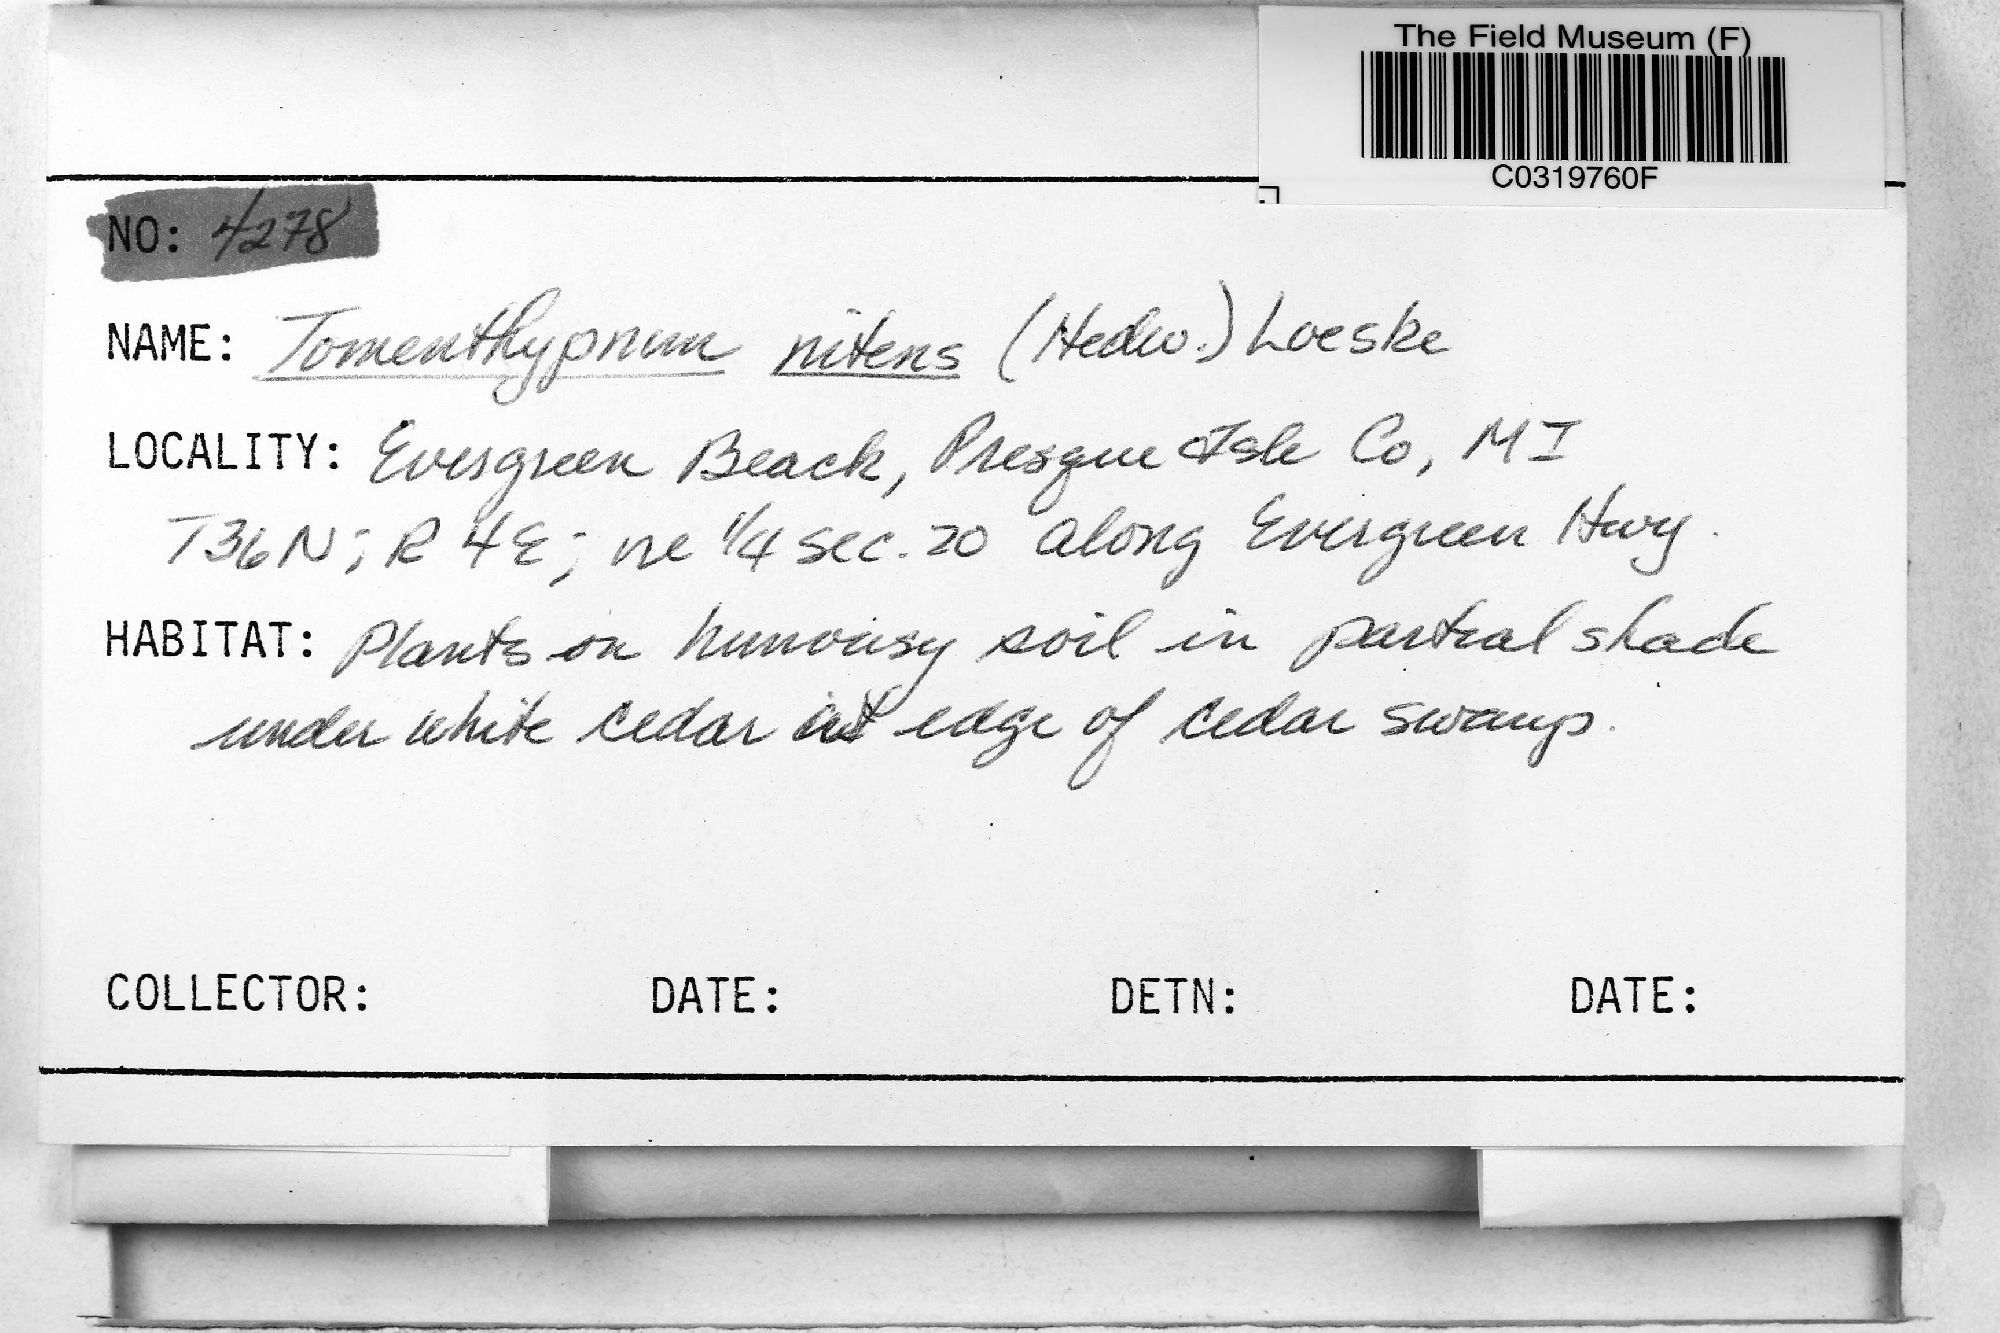 The Field Museum (F)
C0319760F
NO: 4278
NAME: Tomenthypnum nitens (Hedw.) Loeske
LOCALITY: Evergreen Beach, Presque Isle Co, MI
T36N; R 4E; ne 1/4 sec. 20 along Evergreen Hwy.
HABITAT: Plants on humousy soil in partial shade
under white cedar at edge of cedar swamp.
COLLECTOR: DATE: DETN: DATE: